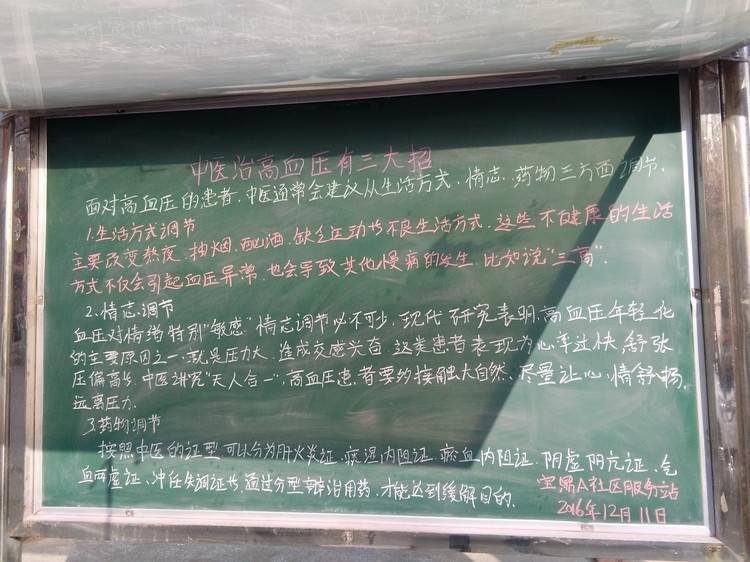 中医治高血压有三大招
面对高血压的患者,中医通常会建议从生活方式、情志、药物三方面调节.
1.生活方式调节
主要改变熬夜、抽烟、酗酒、缺乏运动等不良生活方式,这些不健康的生活
方式不仅会引起血压异常,也会导致其他慢病的发生.比如说“三高”.
2.情志调节
血压对情绪特别“敏感”情志调节必不可少.现代研究表明,高血压年轻化
的主要原因之一,就是压力大、造成交感兴奋.这类患者表现为心率过快,舒张
压偏高等.中医讲究“天人合一”,高血压患者要多接触大自然、尽量让心情舒畅,
远离压力.
3.药物调节
按照中医的证型可以分为肝火炎证、痰湿内阻证、瘀血内阻证、阴虚阳亢证、气
血两虚证、冲任失调证等,通过分型辩治用药,才能达到缓解目的.
宝景A社区服务站
2016年12月11日